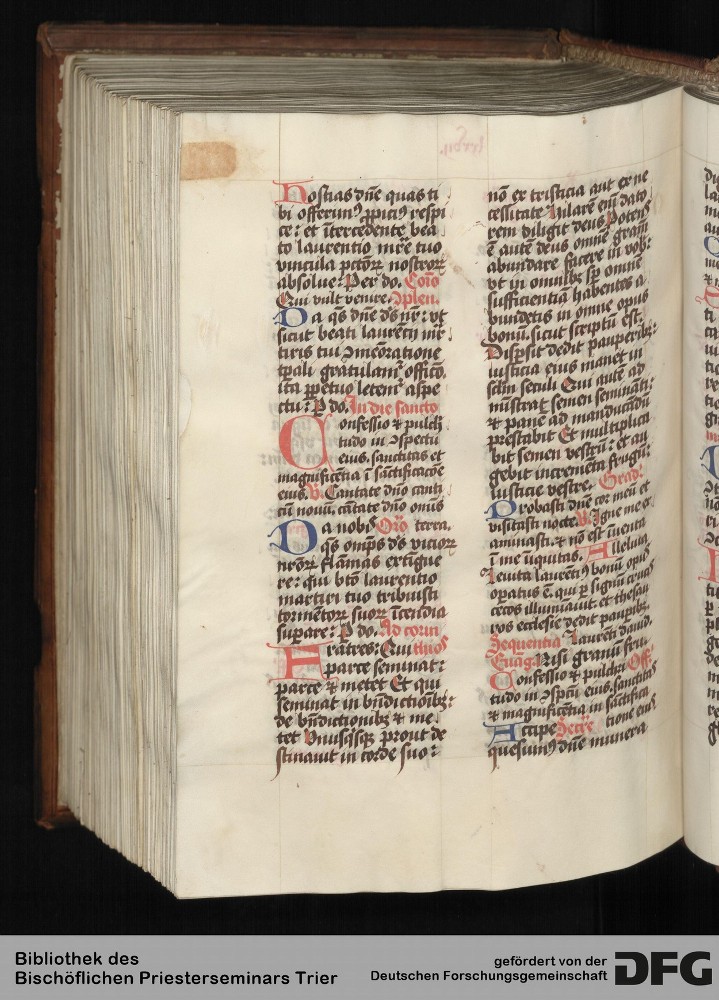 Hostias dn̄e quas ti
bi offerimꝰ ꝓpiciꝰ respi
ce: et ītercedente bea
to laurentio mr̄e tuo
vincula pctōꝝ nostroꝝ
absolue: Per do. Co͞io
Qui vult venire. ꝯplen.
Da qs dn̄e ds nr̄: vt
sicut beati laurētij mr̄
tiris tui ꝯmēoratione
tpali gratulam̉ officō.
ita ꝑpetuo letem̉ aspe
ctu: P do. In die sancto
Confessio et pulch
tudo in ꝯspectu
eius. sanctitas et
magnificētia ī sāctificacōe
eius. V. Cantate dn̄o canti
cū nouū. cātate dn̄o om̄is
Da nobis Oro terra.
qs om̄ps ds vicioꝝ
nr̄oꝝ flāmas extīgue
re: qui bt̄o laurentio
martiri tuo tribuisti
tormētoꝝ suoꝝ īcendia
suꝑare: P do. Ad corin
Fratres: Qui thios
parce seminat:
parce et metet Et qui
seminat in bn̄dictionibꝫ:
de bn̄dictionibꝫ et me
tet Vnusqsqꝫ prout de
stinauit in corde suo:
nō ex tristicia aut ex ne
cessitate hilarē em̄ dato
rem diligit deus Potens
ē autē deus omnē grām
abundare facere in vob:
vt in omnibꝫ sp omnē
sufficientiā habentes a
bundetis in omne opus
bonū. sicut scriptū est.
Dispsit dedit pauperibꝫ:
iusticia eius manet in
sclm seculi Qui autē ad
ministrat semen semināti:
et panē ad manducādū
prestabit Et multiplica
bit semen vestrū: et au
gebit incremēta frugū
iusticie vestre. Grad:
Probasti dn̄e cor meū et
visitasti nocte. V. Igne me ex
aminasti. et nō est īuenta
ī me īiquitas. Alleluia
leuita laurētiꝰ bonū opus
opatus ē. qui p signū crucis
cecos illuminauit. et thesau
ros ecclesie dedit paupibꝫ.
Sequentia Laurenti dauid.
Euāga Nisi granū fru.
Confessio et pulchri Off.
tudo in ꝯspectu eius. sanctitas
et magnificētia in sāctifica
Accipe Secre tione eius
quesumꝰ dn̄e munera
Bibliothek des
Bischöflichen Priesterseminars Trier
gefördert von der
Deutschen Forschungsgemeinschaft
DFG